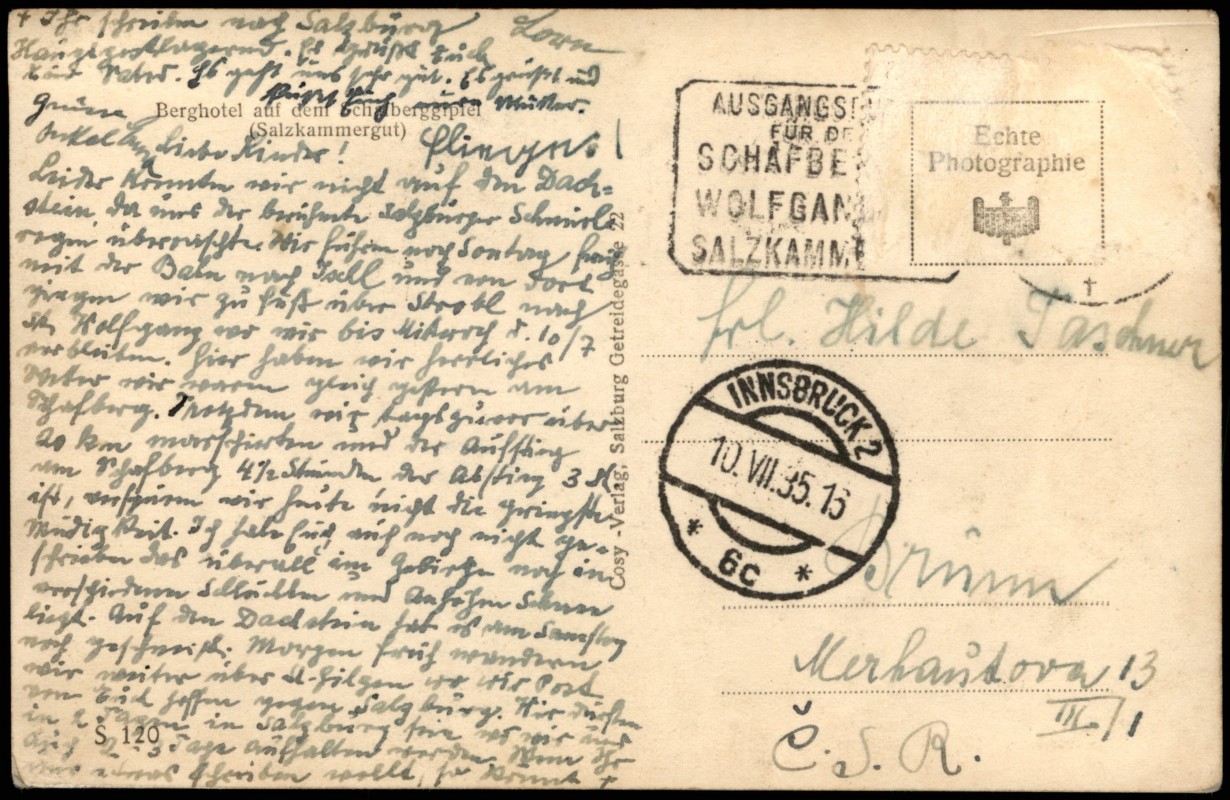 + Ihr schreiben nach Salzburg
Hauptpostlagernd. Es grüßt Euch
Euer Vater. Es geht uns sehr gut. Es grüßt und
küßt Euch eure Mutter.
Berghotel auf dem Schafberggipfel
(Salzkammergut)
Onkel
Liebe Kinder!
Leider konnten wir nicht auf den Dach=
stein, da uns der berühmte Salzburger Schnürl
regen überraschte. Wir fuhren noch Sontag
mit der Bahn nach Ischl und von dort
gingen wir zu Fuß über Strobl nach
St. Wolfgang wo wir bis Mittwoch d. 10/7
verbleiben. Hier haben wir herrliches
Wetter wir waren gleich gestern am
Schafberg. Trotzdem wir tagszuvor über
20 km marschierten und der Aufstieg
am Schafberg 4½ Stunden der Abstieg 3 St
ist, verspüren wir heute nicht die geringste
Müdigkeit. Ich habe Euch auch noch nicht ge-
schrieben das überall im Gebirge noch in
verschiedenen Schluchten und Anhöhen Schnee
liegt. Auf den Dachstein hat es am Samstag
noch geschneit. Morgen früh wandern
wir weiter über St. Gilgen wo wir Post
von Euch hoffen gegen Salzburg. Wir dürften
in 2 Tagen in Salzburg sein wo wir uns
Tage aufhalten werden. Wenn Ihr
uns etwas schreiben wollt, so könnt +
S. 120
Cosy-Verlag, Salzburg Getreidegasse 22
AUSGANGS
FÜR DE
SCHAFBE
WOLFGAN
SALZKAMM
Echte
Photographie
Frl. Hilde Taschner
INNSBRUCK 2
10. VII. 35. 16
* 6c *
Brünn
Merhautova 13
III/1
Č. S. R.